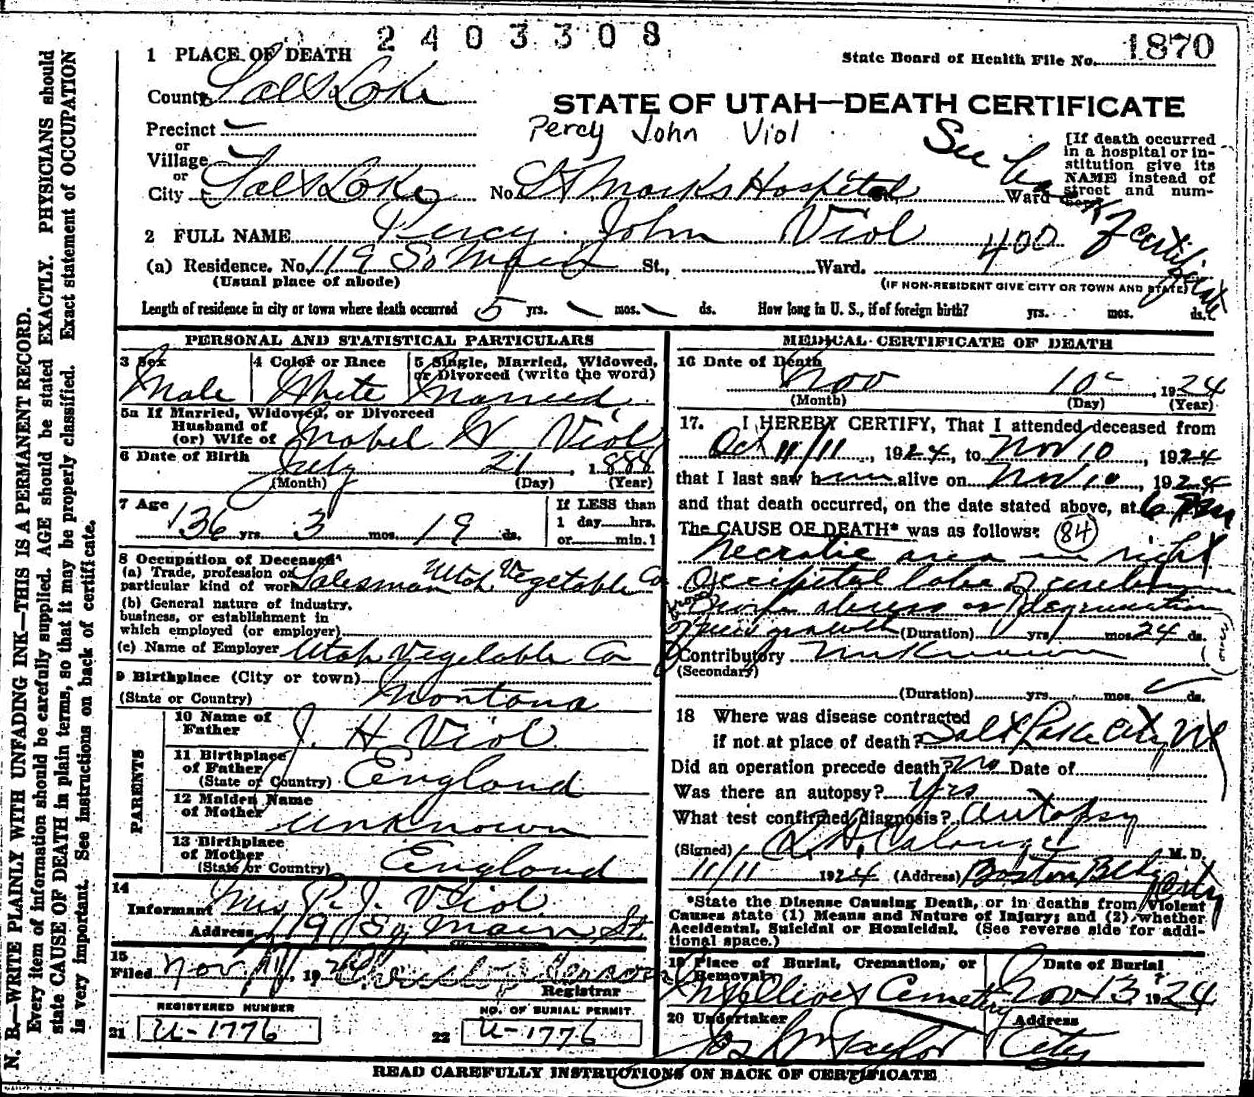 2403308
State Board of Health File No. 1870
1 PLACE OF DEATH
County Salt Lake
STATE OF UTAH—DEATH CERTIFICATE
Precinct
Percy John Viol
or
Village
or
City Salt Lake No. St Marks Hospital St. Ward
[If death occurred
in a hospital or in-
stitution give its
NAME instead of
street and num-
ber.]
See
certificate
2 FULL NAME Percy John Viol 400
(a) Residence. No. 119 So Main St., Ward.
(Usual place of abode)
(IF NON-RESIDENT GIVE CITY OR TOWN AND STATE)
Length of residence in city or town where death occurred 5 yrs. mos. ds. How long in U. S., if of foreign birth? yrs. mos. ds.
PERSONAL AND STATISTICAL PARTICULARS
3 Sex
Male
4 Color or Race
White
5 Single, Married, Widowed,
or Divorced (write the word)
Married
5a If Married, Widowed, or Divorced
Husband of
(or) Wife of Mabel H Viol
6 Date of Birth
July 21, 1888
(Month) (Day) (Year)
7 Age
36 yrs. 3 mos. 19 ds.
If LESS than
1 day hrs.
or min.
8 Occupation of Deceased
(a) Trade, profession or
particular kind of work Salesman Utah Vegetable Co
(b) General nature of industry,
business, or establishment in
which employed (or employer)
(c) Name of Employer Utah Vegetable Co
9 Birthplace (City or town)
(State or Country) Montana
PARENTS
10 Name of
Father J. H Viol
11 Birthplace
of Father
(State or Country) England
12 Maiden Name
of Mother unknown
13 Birthplace
of Mother
(State or Country) England
14
Informant Mrs P. J. Viol
Address 119 So, Main St
15
Filed Nov 11, 1924
Registrar
REGISTERED NUMBER
21 U-1776
NO. OF BURIAL PERMIT
22 U-1776
MEDICAL CERTIFICATE OF DEATH
16 Date of Death
Nov 10 1924
(Month) (Day) (Year)
17. I HEREBY CERTIFY, That I attended deceased from
Oct 11/11, 1924, to Nov 10, 1924
that I last saw him alive on Nov 10, 1924
and that death occurred, on the date stated above, at 6 PM
The CAUSE OF DEATH* was as follows: (84)
Necrotic area in right
Occipital lobe of cerebrum
abscess or degeneration
growth (Duration) yrs. mos. 24 ds.
Contributory unknown
(Secondary)
(Duration) yrs. mos. ds.
18 Where was disease contracted
if not at place of death? Salt Lake City Ut
Did an operation precede death? No Date of
Was there an autopsy? Yes
What test confirmed diagnosis? Autopsy
(Signed) M. D.
11/11 1924 (Address) Boston Bldg City
*State the Disease Causing Death, or in deaths from Violent
Causes state (1) Means and Nature of Injury; and (2) whether
Accidental, Suicidal or Homicidal. (See reverse side for addi-
tional space.)
19 Place of Burial, Cremation, or
Removal
Mt Olivet Cemetery
Date of Burial
Nov 13 1924
20 Undertaker
Jos Wm Taylor
Address
City
READ CAREFULLY INSTRUCTIONS ON BACK OF CERTIFICATE
N. B.—WRITE PLAINLY WITH UNFADING INK—THIS IS A PERMANENT RECORD.
Every item of information should be carefully supplied. AGE should be stated EXACTLY. PHYSICIANS should
state CAUSE OF DEATH in plain terms, so that it may be properly classified. Exact statement of OCCUPATION
is very important. See instructions on back of certificate.